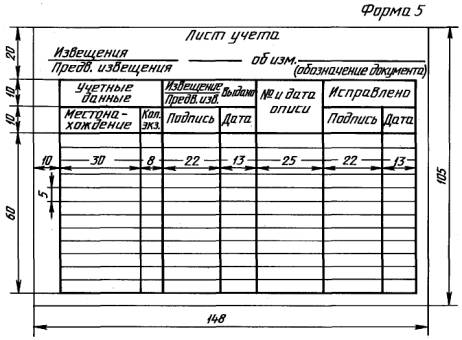 Форма 5
Лист учета
Извещения
Предв. извещения
об изм.
(обозначение документа)
Учетные данные
Извещение
Предв. изв.
выдано
№ и дата описи
Исправлено
Местона-
хождение
Кол. экз.
Подпись
Дата
Подпись
Дата
10 30 8 22 13 25 22 13
5
20
10
10
60
105
148